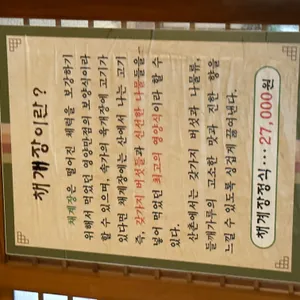 채개장이란?
채개장은 떨어진 체력을 보강하기
위해서 먹었던 영양만점의 보양식이라
할 수 있으며, 속가의 육개장에 고기가
있다면 채개장에는 산에서 나는 고기
즉, 갖가지 버섯들과 신선한 나물들을
넣어 먹었던 최고의 영양식이라 할 수
있다.
산촌에서는 갖가지 버섯과 나물류,
들깨가루의 고소한 맛과 진한 향을
느낄 수 있도록 싱겁게 끓여낸다.
채개장정식···27,000원